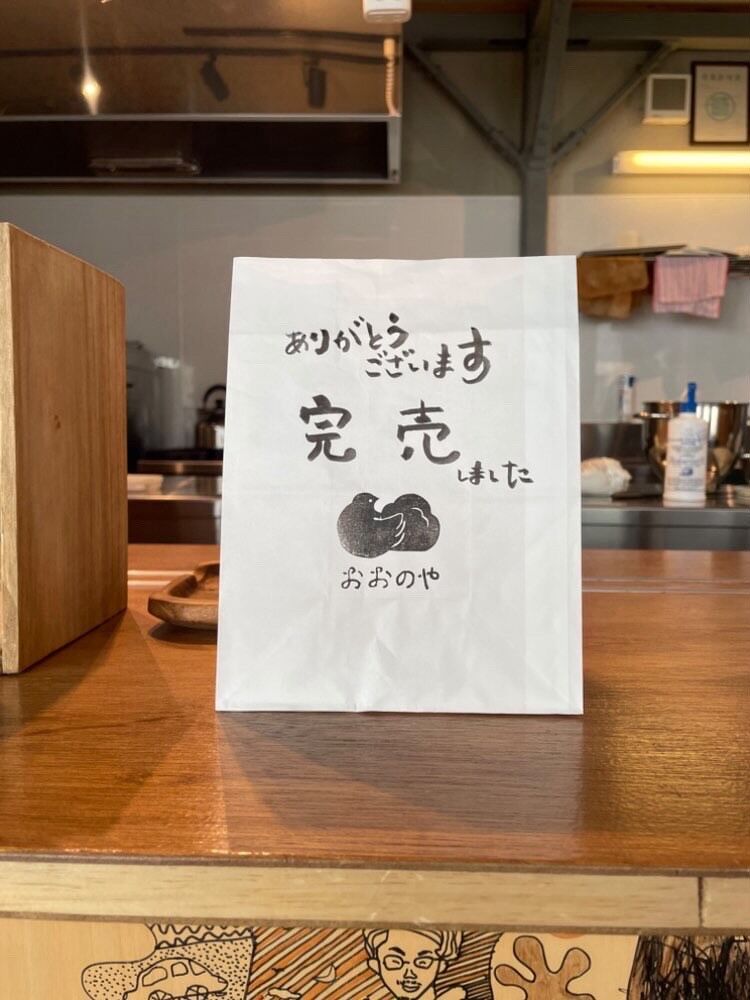 ありがとう
ございます
完売
しました
おおのや